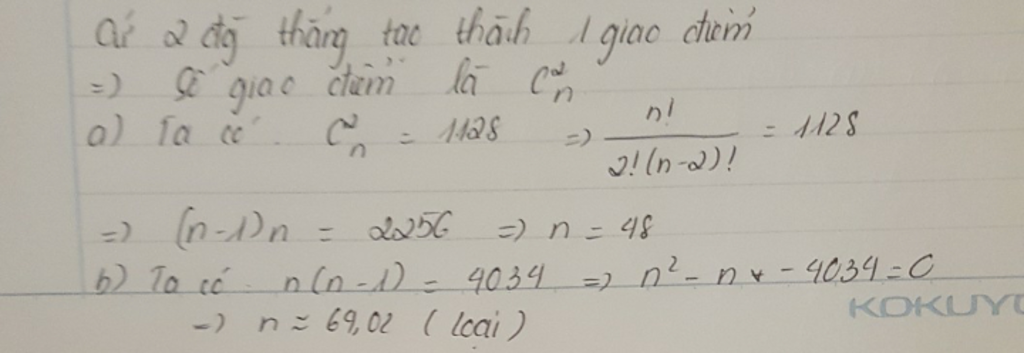 Cứ 2 đg̃ thẳng tạo thành 1 giao điểm
=) Số giao điểm là C²ₙ
a) Ta có. C²ₙ = 1128 =) n! / 2!(n-2)! = 1128
=) (n-1)n = 2256 =) n = 48
b) Ta có. n(n-1) = 4034 =) n² - n + - 4034 = 0
=) n ≈ 69,02 (loại)
KOKUYO